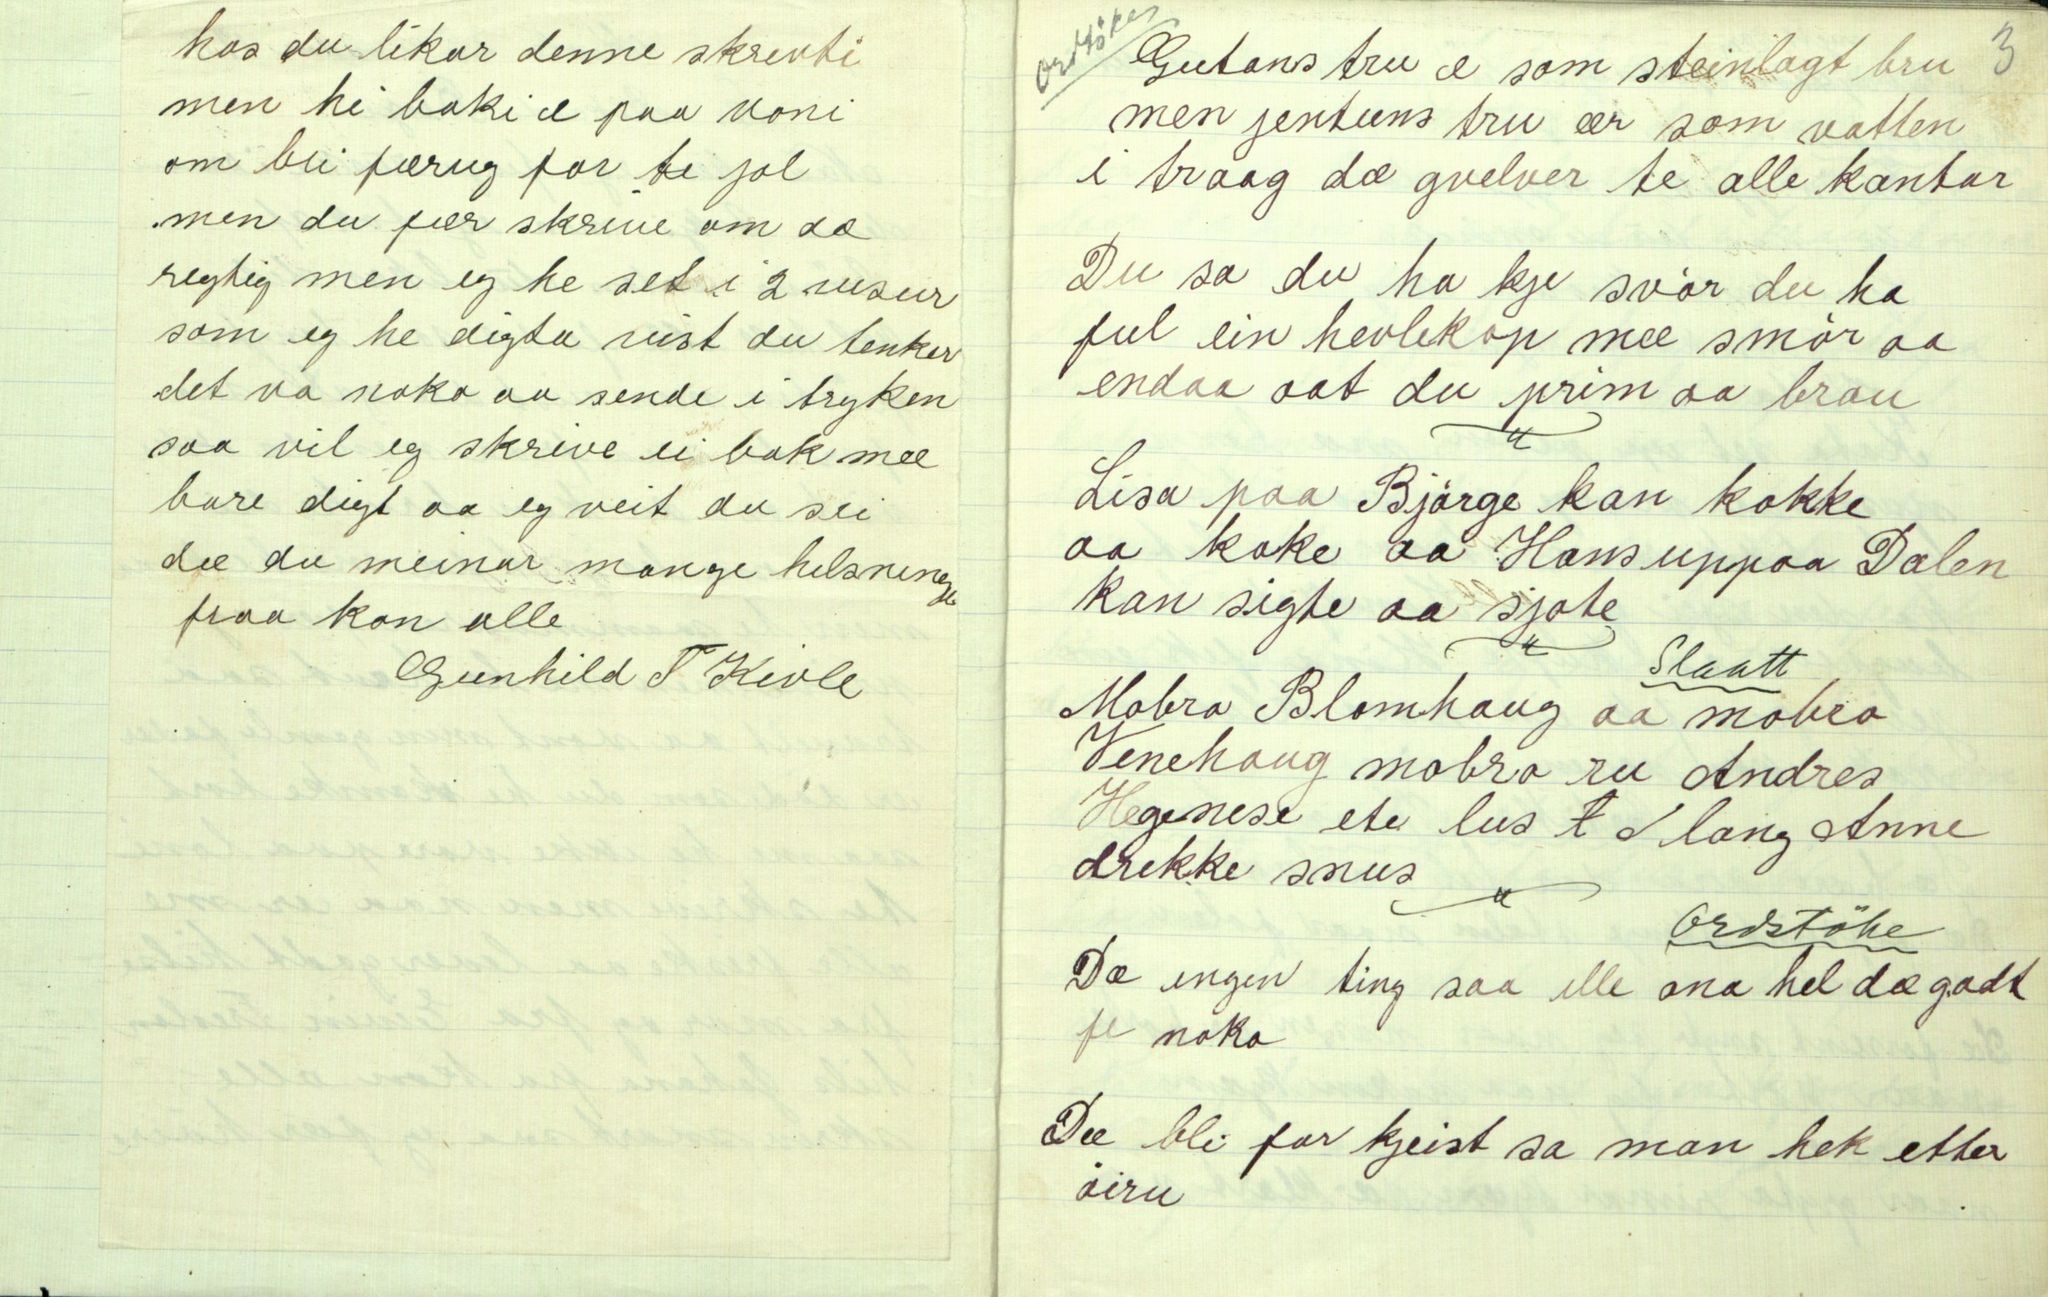 hos du likar denne skrevti
men hi boki æ paa voni
om bli færug for te jol
men du fær skrive om dæ
regtig men eg he set i 2 visur
som eg he digta vist du tenker
det va noko aa sende i tryken
saa vil eg skrive ei bok mæ
bare digt aa eg veit du sei
dæ du meinar mange helsninge
fraa kon alle
Gunhild T Kivle
ordtöke
3
Gutans tru æ som steinlagt bru
men jentuns tru ær som vatten
i traag dæ gvelver te alle kantar
Du sa du ha kje svör du ha
ful ein hevlekop mæ smör aa
endaa aat du prim aa brau
Lisa paa Björge kan kokke
aa koke aa Hans uppaa Dalen
kan sigte aa sjote
Slaatt
Mobro Blomhaug aa mobro
Venehaug mobro ru Andres
Hegenese ete lus lang Anne
drekke snus
Ordstöke
Dæ engen ting saa elle ona hel dæ godt
fe noko
Dæ bli for kjeist sa man hek etter
öiru